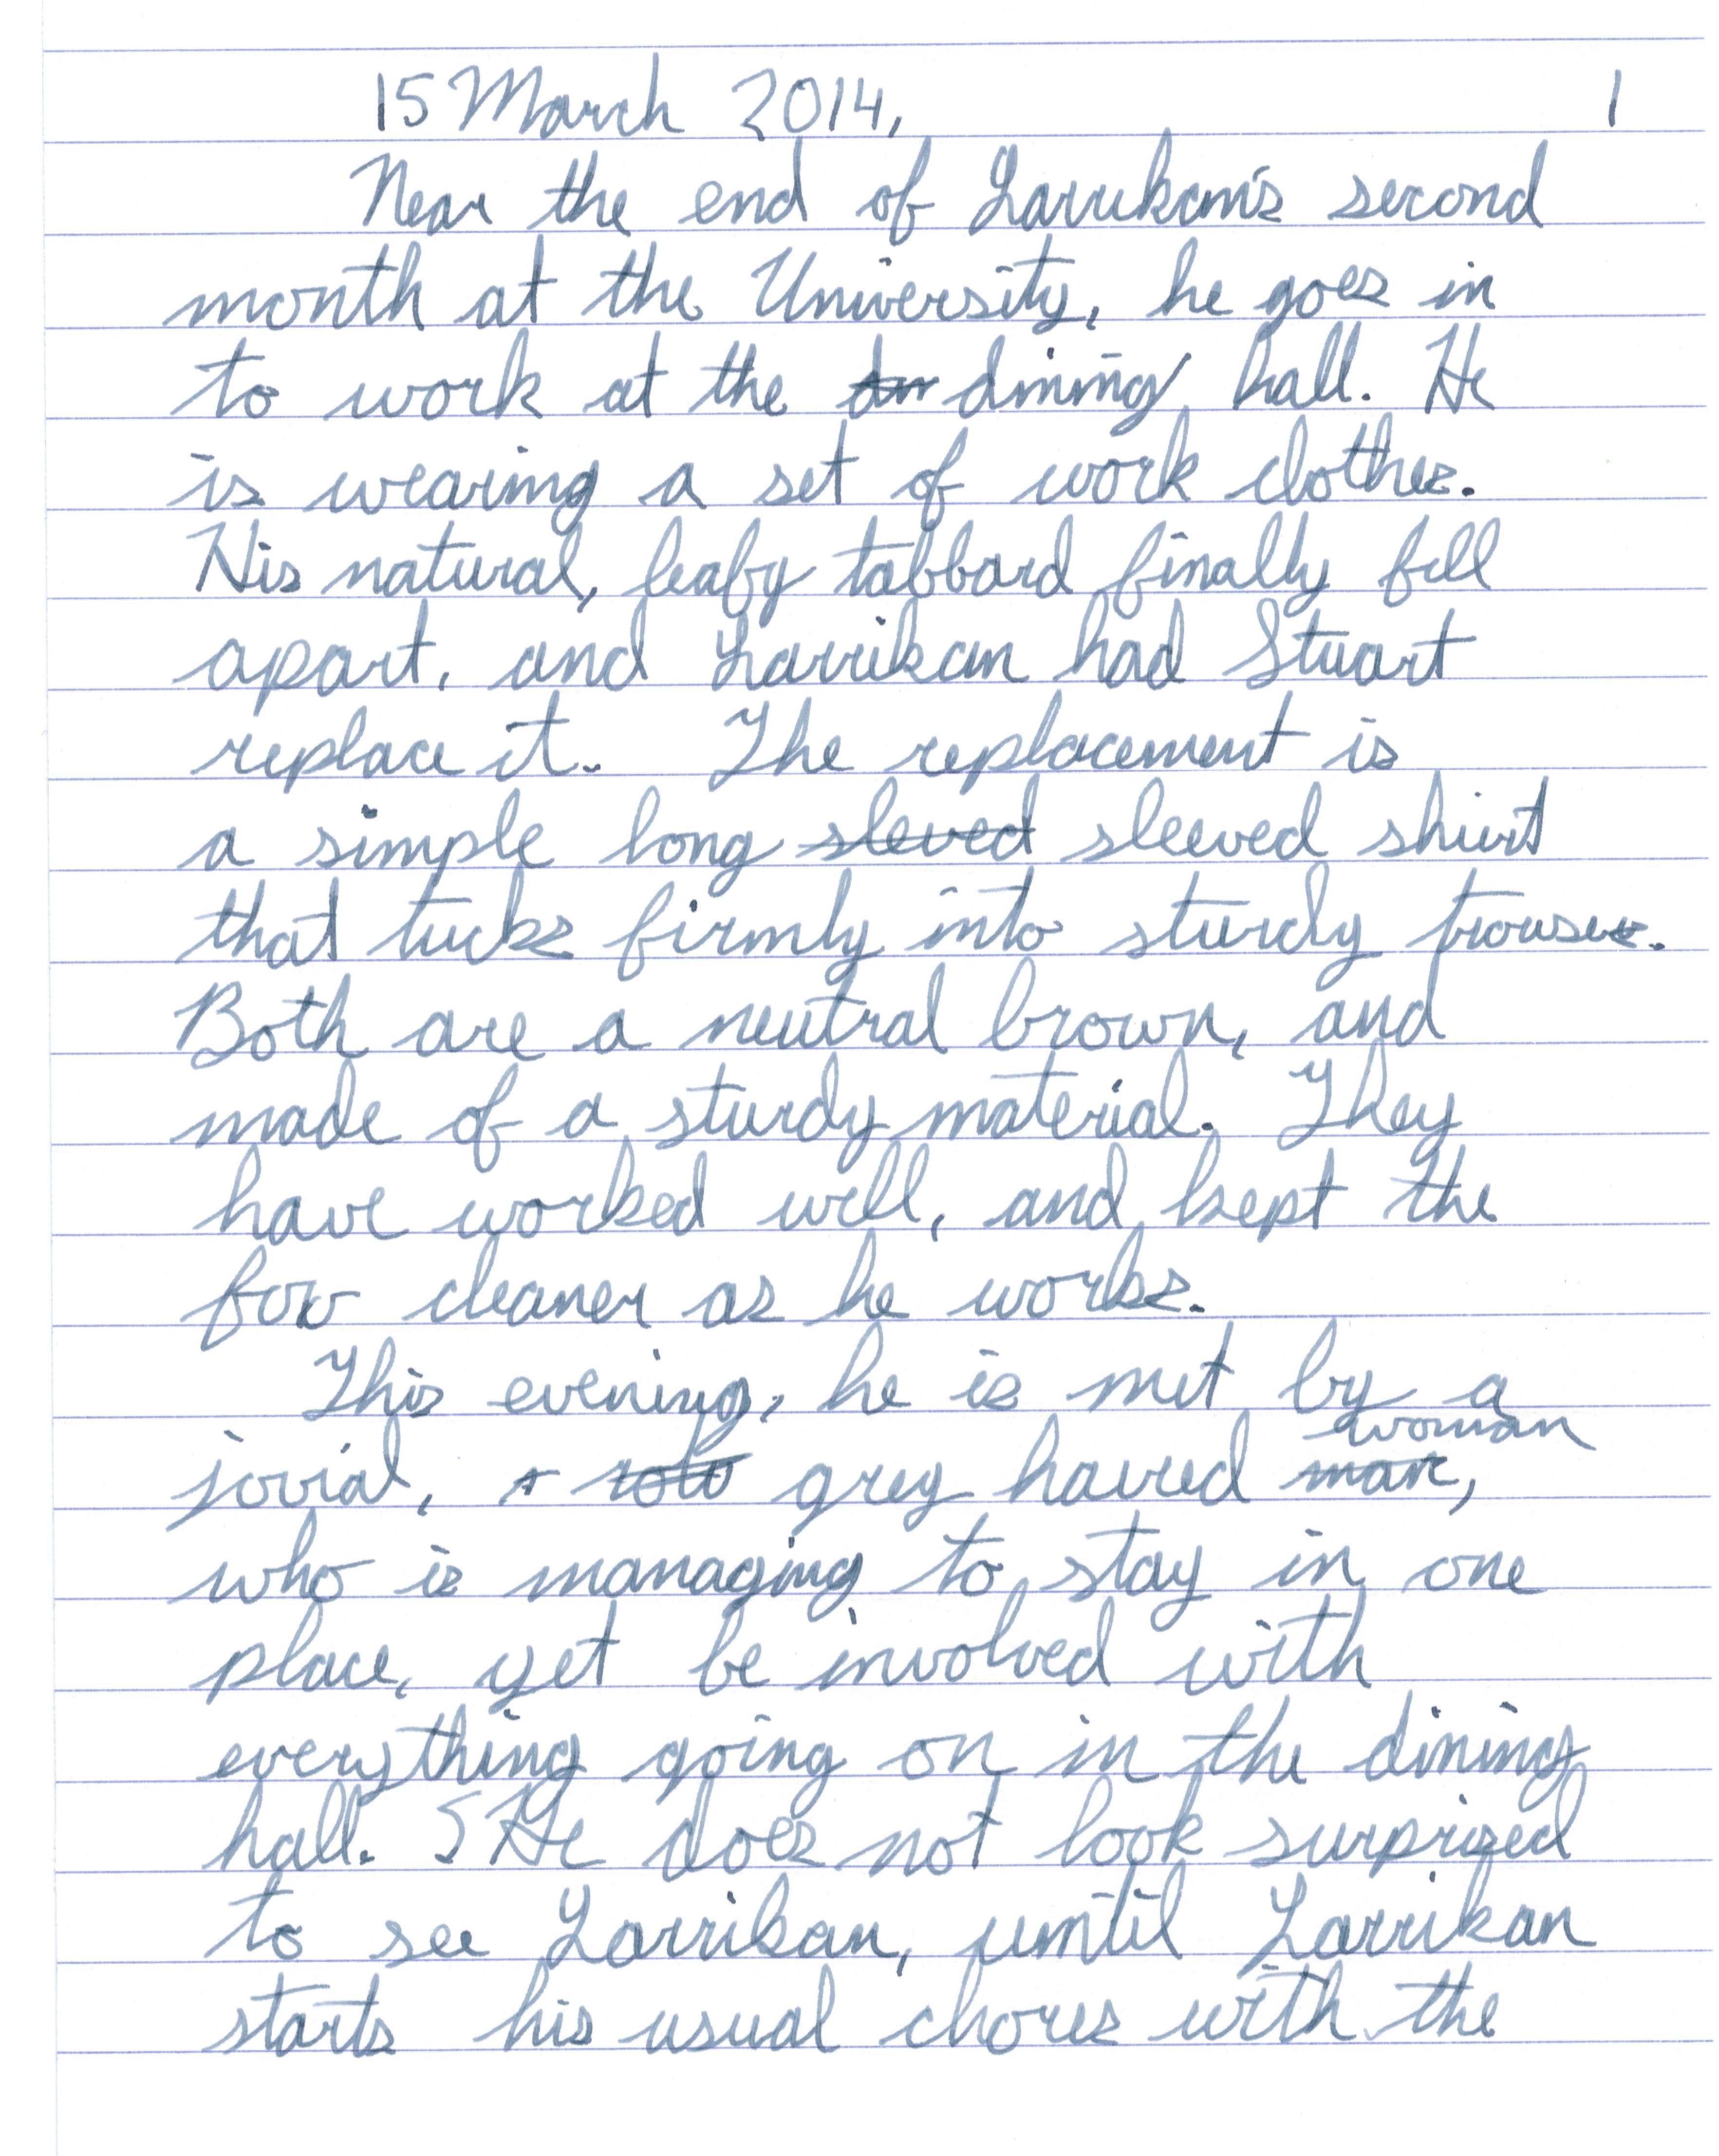 15 March 2014, 1
Near the end of Larrikan's second
month at the University, he goes in
to work at the din dining hall. He
is wearing a set of work clothes.
His natural, leafy tabbard finally fell
apart, and Larrikan had Stuart
replace it. The replacement is
a simple long sleved sleeved shirt
that tucks firmly into sturdy trousers.
Both are a neutral brown, and
made of a sturdy material. They
have worked well, and kept the
fow cleaner as he works.
This evening, he is met by a
woman
jovial, grey haired man,
who is managing to stay in one
place, yet be involved with
everything going on in the dining
hall. SHe does not look surprised
to see Larrikan, until Larrikan
starts his usual chores with the